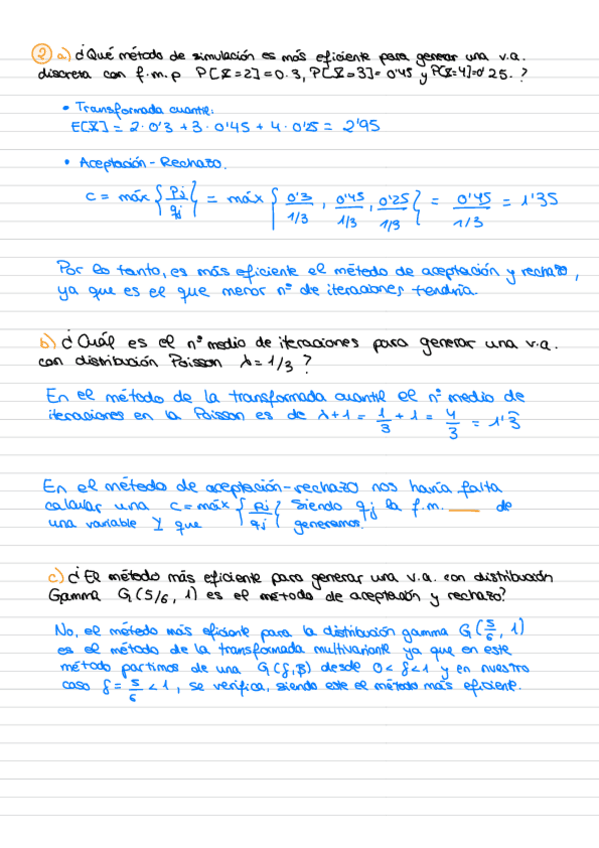 2 a) ¿Qué método de simulación es más eficiente para generar una v.a.
discreta con f.m.p P[X=2]=0.3, P[X=3]=0'45 y P[X=4]=0'25.?
• Transformada cuantil:
E[X] = 2·0'3 + 3·0'45 + 4·0'25 = 2'95
• Aceptación-Rechazo.
C = máx { pj/qj } = máx { 0'3/1/3 , 0'45/1/3 , 0'25/1/3 } = 0'45/1/3 = 1'35
Por lo tanto, es más eficiente el método de aceptación y rechazo,
ya que es el que menor nº de iteraciones tendría.
b) ¿Cuál es el nº medio de iteraciones para generar una v.a.
con distribución Poisson λ=1/3?
En el método de la transformada cuantil el nº medio de
iteraciones en la Poisson es de λ+1 = 1/3 + 1 = 4/3 = 1'3̂
En el método de aceptación-rechazo nos haría falta
calcular una C=máx { pj/qj } siendo qj la f.m. ____ de
una variable Y que generemos.
c) ¿El método más eficiente para generar una v.a. con distribución
Gamma G(5/6, 1) es el método de aceptación y rechazo?
No, el método más eficiente para la distribución gamma G(5/6, 1)
es el método de la transformada multivariante ya que en este
método partimos de una G(δ,β) desde 0<δ<1 y en nuestro
caso δ = 5/6 < 1, se verifica, siendo este el método más eficiente.